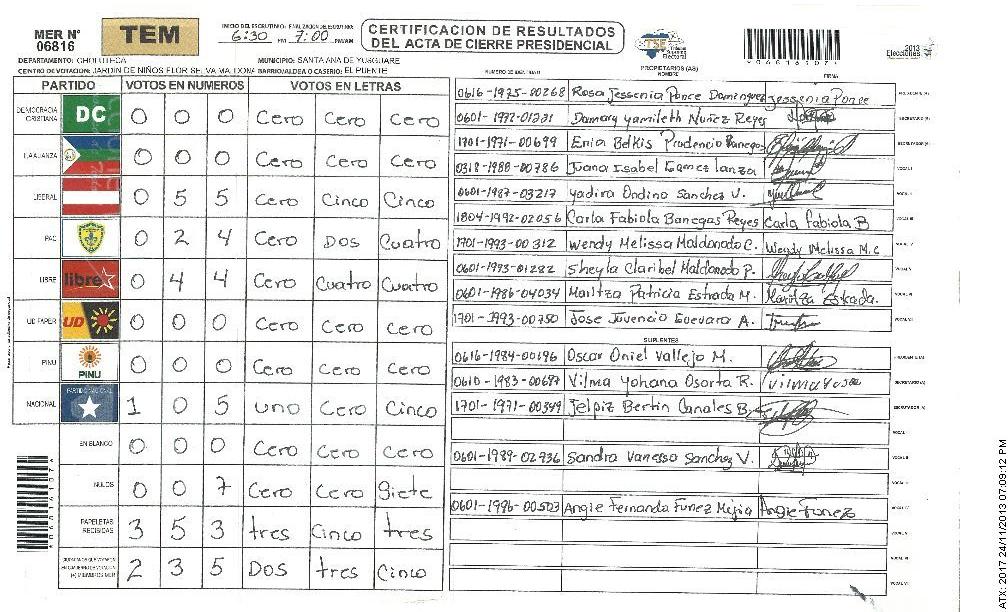 MER Nº
06816
TEM
INICIO DEL ESCRUTINIO: FINALIZACION DE ESCRUTINIO:
6:30 PM 7:00 PM/AM
CERTIFICACION DE RESULTADOS
DEL ACTA DE CIERRE PRESIDENCIAL
TSE Tribunal Supremo Electoral
2013
Elecciones
DEPARTAMENTO: CHOLUTECA MUNICIPIO: SANTA ANA DE YUSGUARE
CENTRO DE VOTACION: JARDIN DE NIÑOS FLOR BARRIO/ALDEA O CASERIO: EL PUENTE
PROPIETARIOS (AS)
NOMBRE
FIRMA
PARTIDO VOTOS EN NUMEROS VOTOS EN LETRAS
DEMOCRACIA CRISTIANA DC 0 0 0 Cero Cero Cero
0 0 0 Cero Cero Cero
LIBERAL 0 5 5 Cero Cinco Cinco
PAC 0 2 4 Cero Dos Cuatro
LIBRE libre 0 4 4 Cero Cuatro Cuatro
UD FAPER UD 0 0 0 Cero Cero Cero
PINU PINU 0 0 0 Cero Cero Cero
NACIONAL PARTIDO NACIONAL 1 0 5 uno Cero Cinco
EN BLANCO 0 0 0 Cero Cero Cero
NULOS 0 0 7 Cero Cero Siete
PAPELETAS RECIBIDAS 3 5 3 tres Cinco tres
2 3 5 Dos tres Cinco
0616-1975-00268 Rosa Jessenia Ponce Dominguez Jessenia Ponce
0601-1972-01221 Damary Yamileth Nuñez Reyes
1701-1971-00699 Enia Belkis Prudencio Banegas
0318-1988-00786 Juana Isabel Gomez Lanza
0601-1987-03217 Yadira Ondino Sanchez V.
1804-1992-02056 Carla Fabiola Banegas Reyes Carla Fabiola B
1701-1993-00312 Wendy Melissa Maldonado C. Wendy Melissa M.C
0601-1993-01282 Sheyla Claribel Maldonado P.
0601-1986-04034 Maritza Patricia Estrada M. Maritza Estrada.
1701-1993-00750 Jose Juvencio Guevara A.
SUPLENTES
0616-1984-00196 Oscar Oniel Vallejo M.
0610-1983-00697 Vilma Yohana Osorto R.
1701-1971-00349 Jelpiz Bertin Canales B.
0601-1989-02736 Sandra Vanessa Sanchez V.
0601-1996-00503 Angie Fernanda Funez Mejia Angie Funez
ATX: 2017 24/11/2013 07:09:12 PM